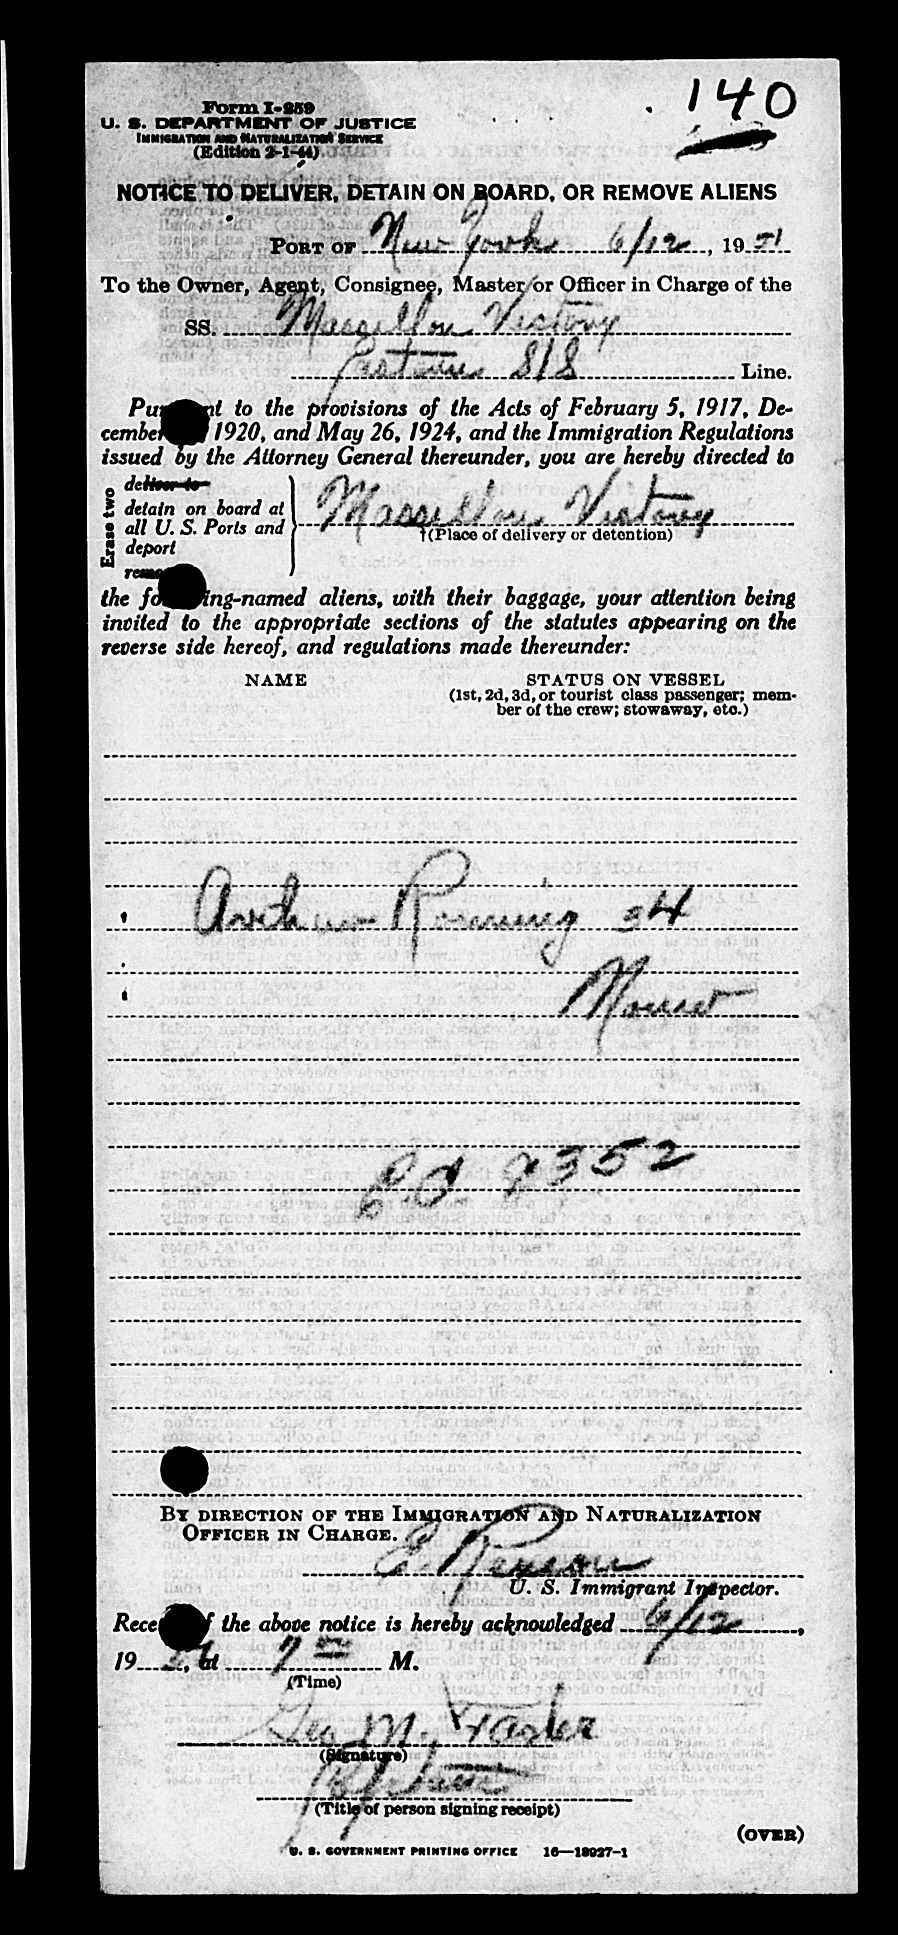 140
Form I-259
U. S. DEPARTMENT OF JUSTICE
IMMIGRATION AND NATURALIZATION SERVICE
(Edition 2-1-44)
NOTICE TO DELIVER, DETAIN ON BOARD, OR REMOVE ALIENS
PORT OF New York 6/12, 1951
To the Owner, Agent, Consignee, Master/or Officer in Charge of the
SS. Massillon Victory
Eastern S/S Line.
Pu nt to the provisions of the Acts of February 5, 1917, De-
cember 1920, and May 26, 1924, and the Immigration Regulations
issued by the Attorney General thereunder, you are hereby directed to
Erase two
deliver to
detain on board at
all U. S. Ports and
deport
remo
Massillon Victory
†(Place of delivery or detention)
the fo ing-named aliens, with their baggage, your attention being
invited to the appropriate sections of the statutes appearing on the
reverse side hereof, and regulations made thereunder:
NAME STATUS ON VESSEL
(1st, 2d, 3d, or tourist class passenger; mem-
ber of the crew; stowaway, etc.)
Arthur 34
9352
BY DIRECTION OF THE IMMIGRATION AND NATURALIZATION
OFFICER IN CHARGE.
E.
U. S. Immigrant Inspector.
Rece f the above notice is hereby acknowledged 6/12,
19 51, at 7 M.
(Time)
Geo M.
(Signature)
(Title of person signing receipt)
(OVER)
U. S. GOVERNMENT PRINTING OFFICE 16—18927-1